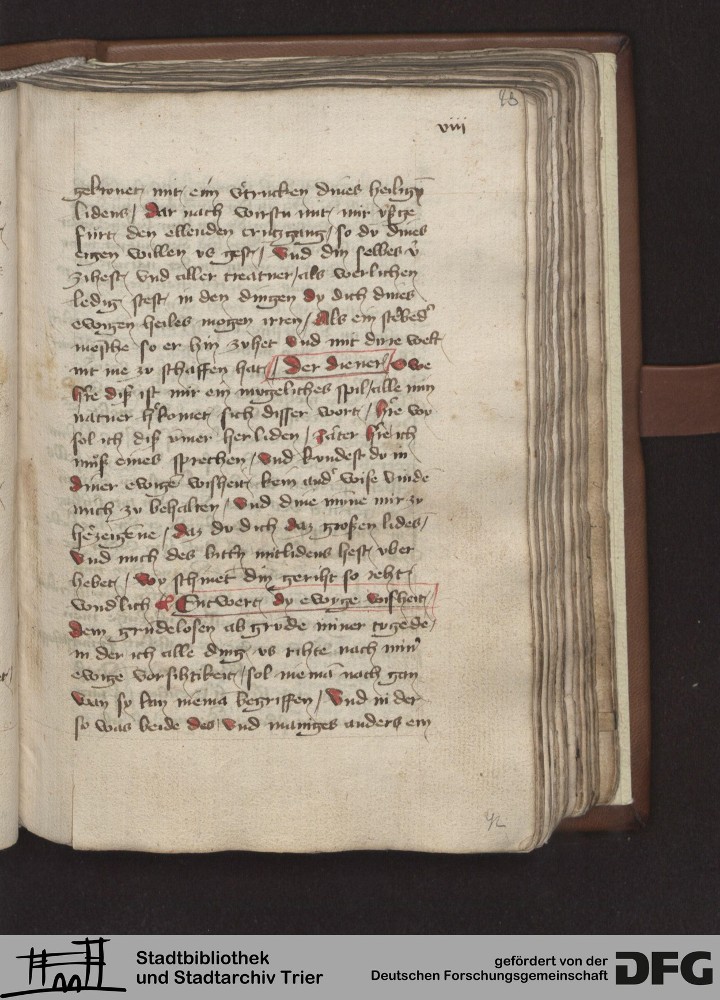 43
viii
gekronet mit eim vstrucken dines heilige
lidens / Dar nach wirstu mit mir vsge
furt den ellenden crutzgang / so du dines
eigen willen vs gest / Vnd din selbes v
zihest vnd aller creatuer / als werlichen
ledig stest in den dingen dy dich dines
ewigen heiles mogen irren / Als ein sterbed
mesche so er hin zuhet Vnd mit dirre welt
nit me zu schaffen hat / Der diener / Owe
hre dis ist mir ein mugeliches spil / alle min
natuer komet sich disser wort / hre wy
sol ich dis vmer her liden / Zater hre ich
mus eines sprechen / Vnd kundest du in
Diner ewige wisheit kein and wise vinde
mich zu behalten / Vnd dine mine mir zu
zeigene / Daz du dich daz grossen lides /
Vnd mich des mitlidens hest vber
hebet / Wy schinet din geriht so reht
wundlich Entwert dy ewige wisheit /
Dem grudelosen ab grude miner tugede /
in der ich alle ding vs rihte nach min
ewige vorsihtikeit / sol niema nach gan
wan sy kan niema begriffen / Vnd in der
so was beide des / Vnd maniges anders ein
42
Stadtbibliothek
und Stadtarchiv Trier
gefördert von der
Deutschen Forschungsgemeinschaft
DFG